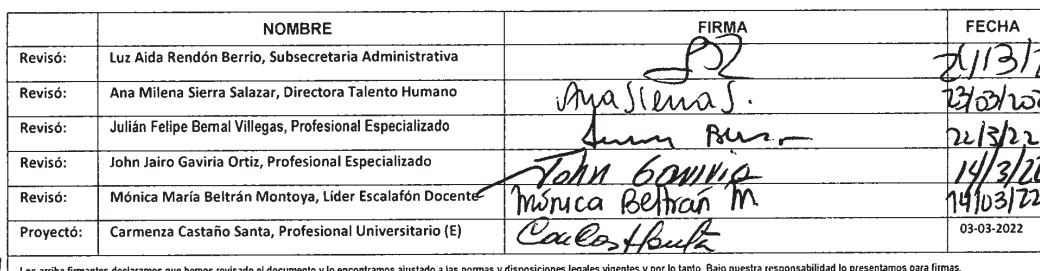 NOMBRE FIRMA FECHA
Revisó: Luz Aida Rendón Berrio, Subsecretaria Administrativa
Revisó: Ana Milena Sierra Salazar, Directora Talento Humano Ana Sierra S. 23/03/202
Revisó: Julián Felipe Bernal Villegas, Profesional Especializado 22/3/22
Revisó: John Jairo Gaviria Ortiz, Profesional Especializado John Gaviria 14/3/22
Revisó: Mónica María Beltrán Montoya, Líder Escalafón Docente Mónica Beltrán M 14/03/22
Proyectó: Carmenza Castaño Santa, Profesional Universitario (E) 03-03-2022
Los arriba firmantes declaramos que hemos revisado el documento y lo encontramos ajustado a las normas y disposiciones legales vigentes y por lo tanto, Bajo nuestra responsabilidad lo presentamos para firmas.